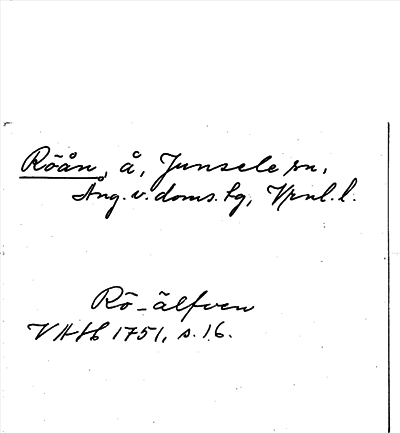 Röån, å, Junsele sn,
Ång. v. doms. tg, Vrnl. l.
Rö-älfven
VAH 1751, s. 16.